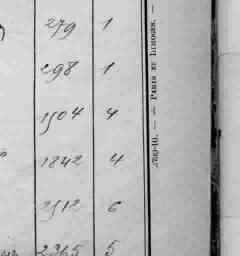 279 1
298 1
1504 4
1842 4
2512 6
2365 5
PARIS ET LIMOGES. —